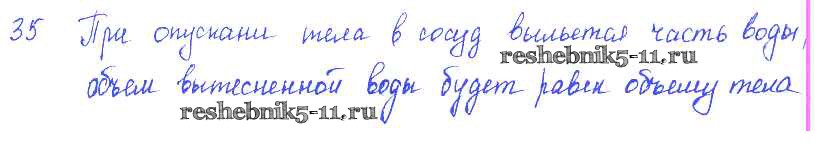 35 При опускани тела в сосуд выльется часть воды,
reshebnik5-11.ru
объем вытесненной воды будет равен объему тела
reshebnik5-11.ru